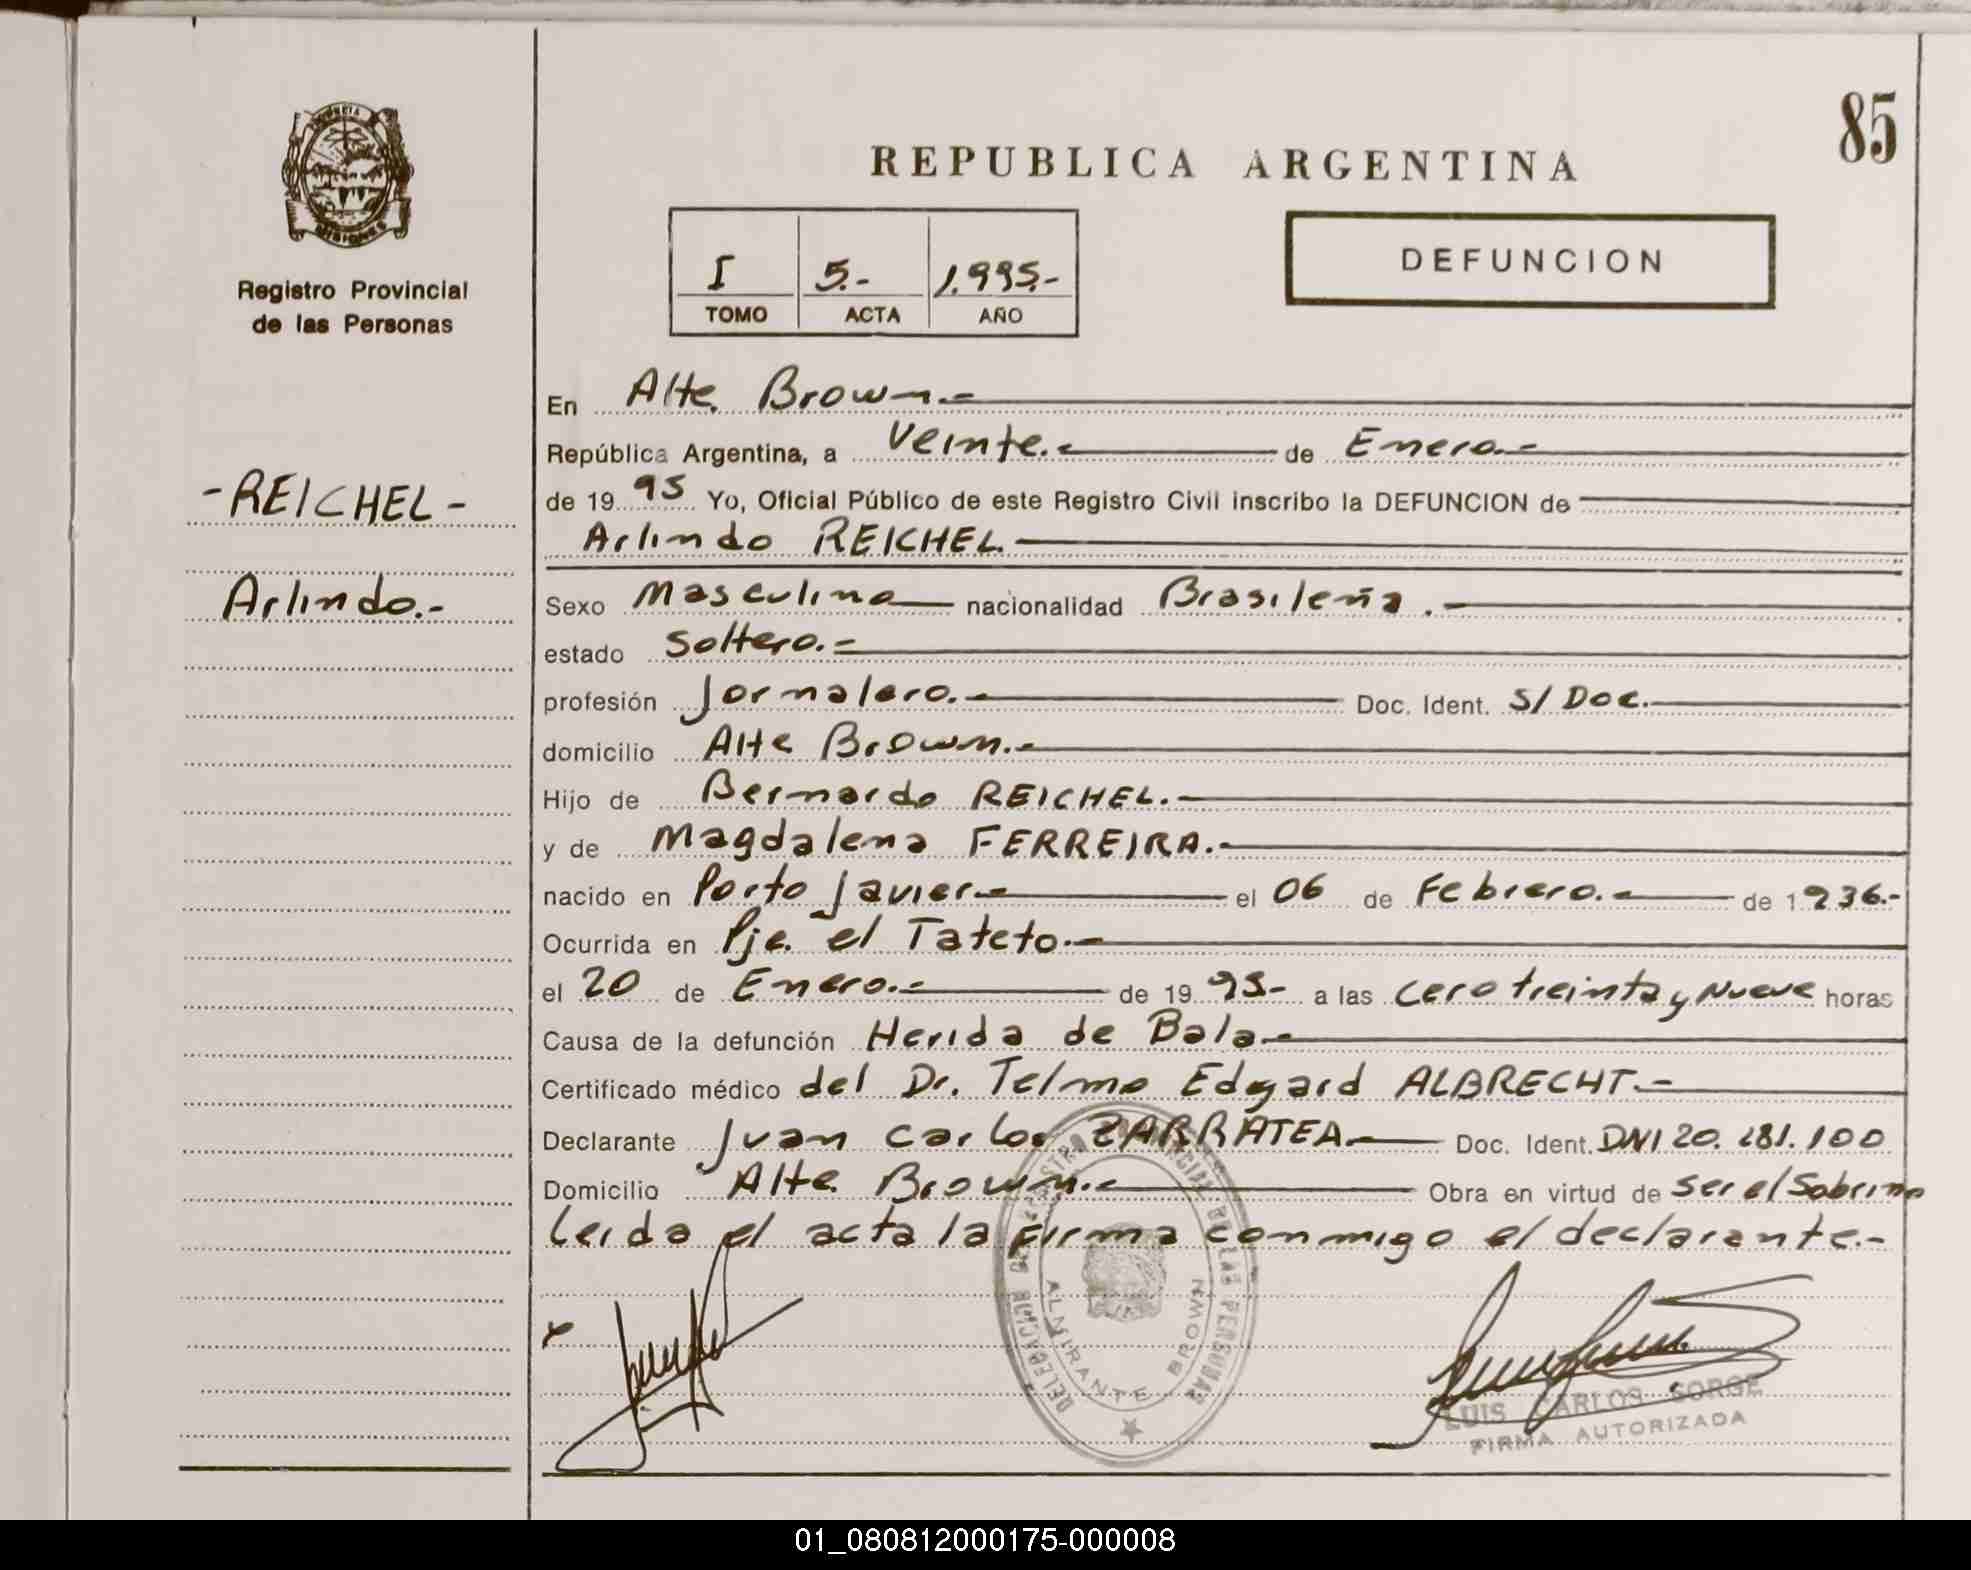 85
REPUBLICA ARGENTINA
PROVINCIA
MISIONES
Registro Provincial
de las Personas
DEFUNCION
I 5.- 1.995.-
TOMO ACTA AÑO
- REICHEL -
Arlindo.-
En Alte. Brown.-
República Argentina, a Veinte.- de Enero.-
de 19 95 Yo, Oficial Público de este Registro Civil inscribo la DEFUNCION de
Arlindo REICHEL
Sexo Masculino nacionalidad Brasileña.-
estado Soltero.-
profesión Jornalero.- Doc. Ident. S/ Doc.
domicilio Alte Brown.-
Hijo de Bernardo REICHEL.-
y de Magdalena FERREIRA.-
nacido en Porto Javier el 06 de Febrero.- de 1936.-
Ocurrida en Pje. el Tateto.-
el 20 de Enero.- de 19 95- a las Cero treinta y Nueve horas
Causa de la defunción Herida de Bala
Certificado médico del Dr. Telmo Edgard ALBRECHT.-
Declarante Juan Carlos ZARRATEA Doc. Ident. DNI 20.281.100
Domicilio Alte. Brown.- Obra en virtud de ser el Sobrino
Leida el acta la firma conmigo el declarante.-
DELEGACION REGISTRO PROVINCIAL DE LAS PERSONAS
ALMIRANTE BROWN
LUIS CARLOS SORGE
FIRMA AUTORIZADA
01_080812000175-000008